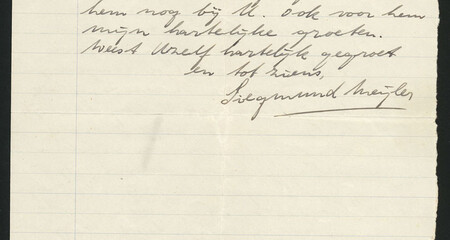 hem nog bij U. Ook voor hem
mijn hartelijke groeten.
Weest Uzelf hartelijk gegroet
en tot ziens,
Siegmund Meijler